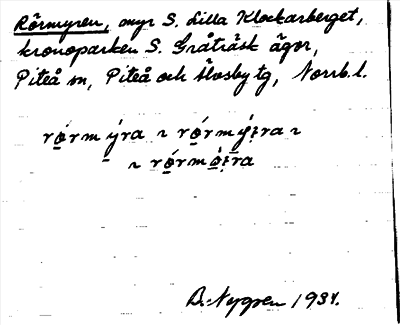 Rörmyren, myr S. Lilla Klockarberget,
kronoparken S. Gråträsk ägor,
Piteå sn, Piteå och Älvsby tg, Norrb. l.
rö́rm ýra ~ rö́rm ý̤ra ~
~ rö́rm ö̤́ra
B. Nygren 1934.